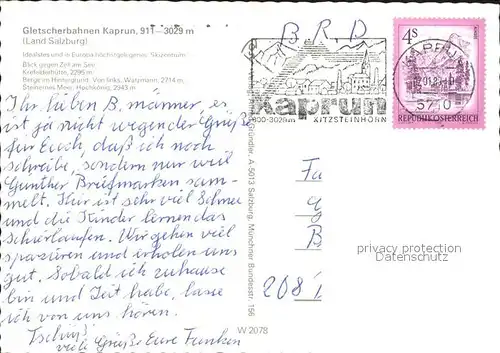 Gletscherbahnen Kaprun, 911—3029 m
(Land Salzburg)
Idealstes und in Europa höchstgelegenes Skizentrum
Blick gegen Zell am See
Krefelderhütte, 2295 m
Berge im Hintergrund: Von links, Watzmann, 2714 m,
Steinernes Meer, Hochkönig, 2943 m
Ihr lieben B. männer, es
ist ja nicht wegen der Grüße
für Euch, daß ich noch
schreibe, sondern nur weil
Gunther Briefmarken sam-
melt. Hier ist sehr viel Schnee
und die Kinder lernen das
Schierlaufen. Wir gehen viel
spazieren und erholen uns
gut. Sobald ich zuhause
bin und Zeit habe, lasse
ich von uns hören.
Tschüß
viele Grüße Eure Funken
B.R.D
Kaprun
KITZSTEINHORN
4S
5710
REPUBLIK ÖSTERREICH
A 5013 Salzburg, Münchner Bundesstr. 156
Fa
B
208
privacy protection
Datenschutz
W 2078